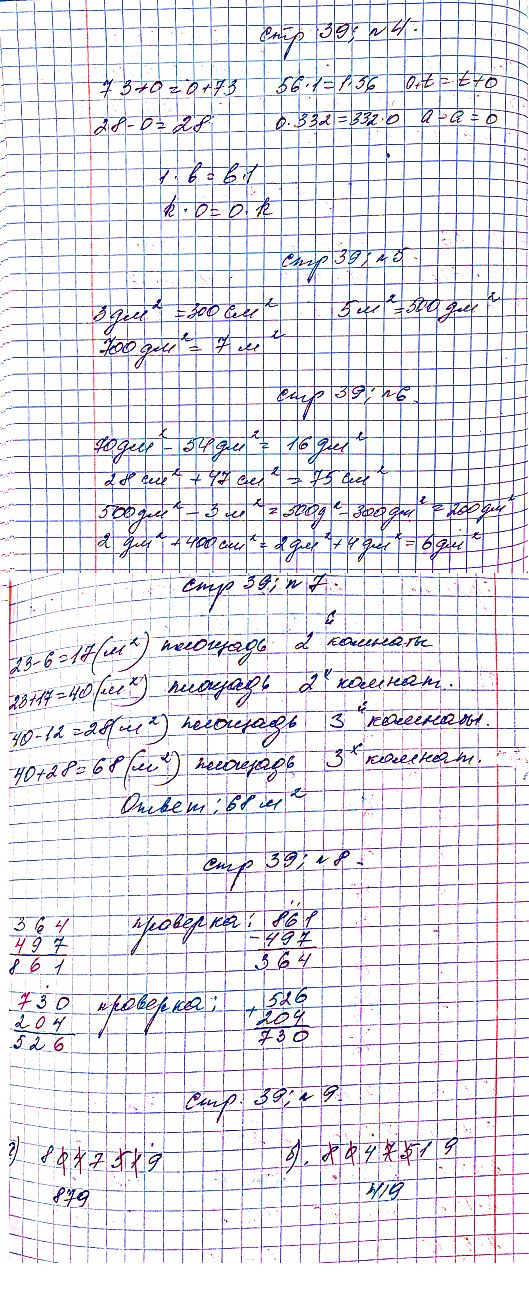 стр 39; n 4.
73+0=0+73 56·1=1·56 0+t=t+0
28-0=28 0·332=332·0 a-a=0
1·в=в·1
k·0=0·k
стр 39; n 5
3 дм² =300 см² 5 м²=500 дм²
700 дм²= 7 м²
стр 39; n 6.
70 дм² - 54 дм² = 16 дм²
28 см² + 47 см² = 75 см²
500 дм² - 3 м² = 500 д² - 300 дм² = 200 дм²
2 дм² + 400 см² = 2 дм² + 4 дм² = 6 дм²
стр 39; n 7.
23-6=17(м²) площадь 2й комнаты
23+17=40(м²) площадь 2х комнат.
40-12=28(м²) площадь 3й комнаты.
40+28=68(м²) площадь 3х комнат.
Ответ: 68 м²
стр 39; n 8.
364 проверка: 861
497 -497
861 364
730 проверка: +526
204 204
526 730
стр. 39; n 9.
8047519 б). 8047519
879 419